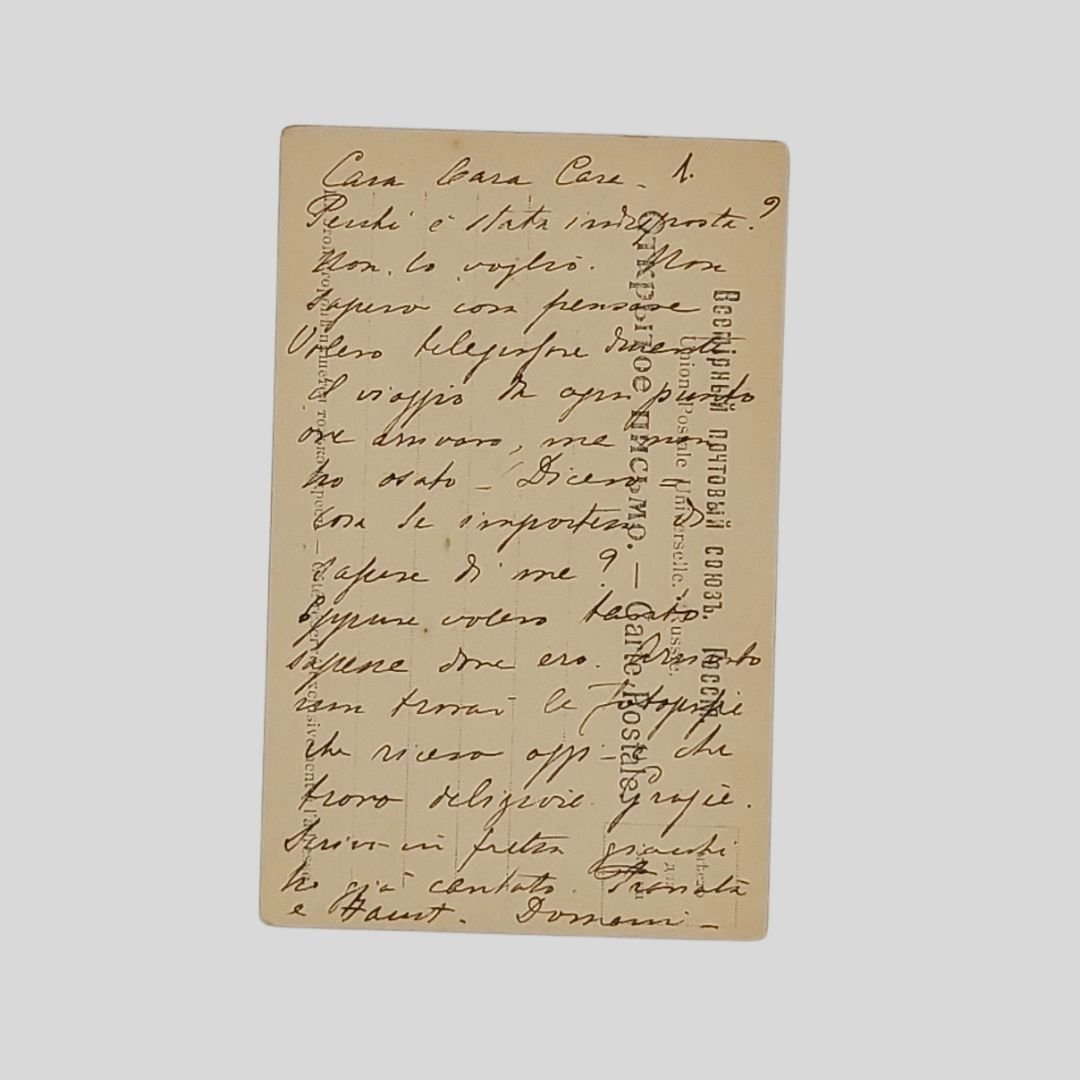 Cara Cara Cara - 1.
Perchè è stata indisposta?
Non lo voglio. Non
sapevo cosa pensare
Volevo telegrafare durante
il viaggio da ogni punto
ove arrivavo, me non
ho osato - Dicevo =
cosa le importerà di
sapere di me?
Eppure volevo tanto
sapesse dove ero.
non trovai le fotografie
che ricevo oggi - e che
trovo deliziose. Grazie.
Scrivo in fretta giacchè
ho già cantato. Traviata
e Faust. Domani -
Всемірный почтовый союзъ. Россія.
Union Postale Universelle. Russie.
Открытое письмо. — Carte Postale.